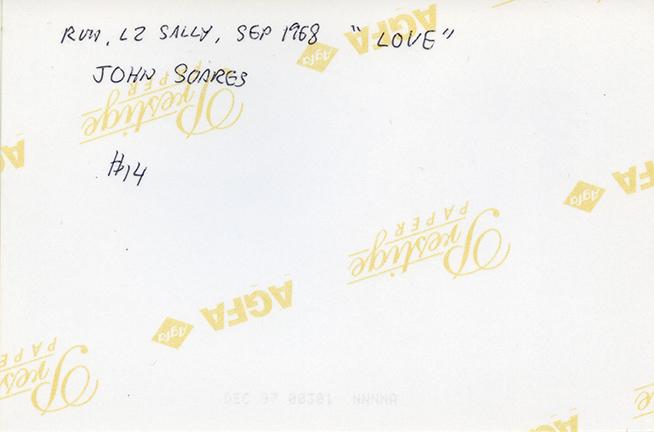 RVN, LZ SALLY, SEP 1968 "LOVE"
JOHN SOARES
#14
AGFA
Agfa
Prestige
PAPER
AGFA
Agfa
AGFA
Agfa
Prestige
PAPER
AGFA
Agfa
Prestige
PAPER
DEC 97 00301 NNNNA
AGFA